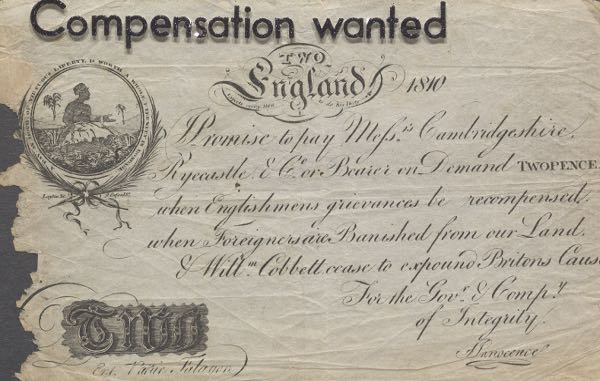 Compensation wanted
TWO
England 1810
expects every Man to do his Duty
I Promise to pay Messrs. Cambridgeshire,
Ryecastle, & Co. or Bearer on Demand TWOPENCE
when Englishmens grievances be recompensed,
when Foreigners are Banished from our Land,
& Willm. Cobbett cease to expound Britons Cause
For the Govr. & Compy.
of Integrity.
Innocence
TWO
Ent.